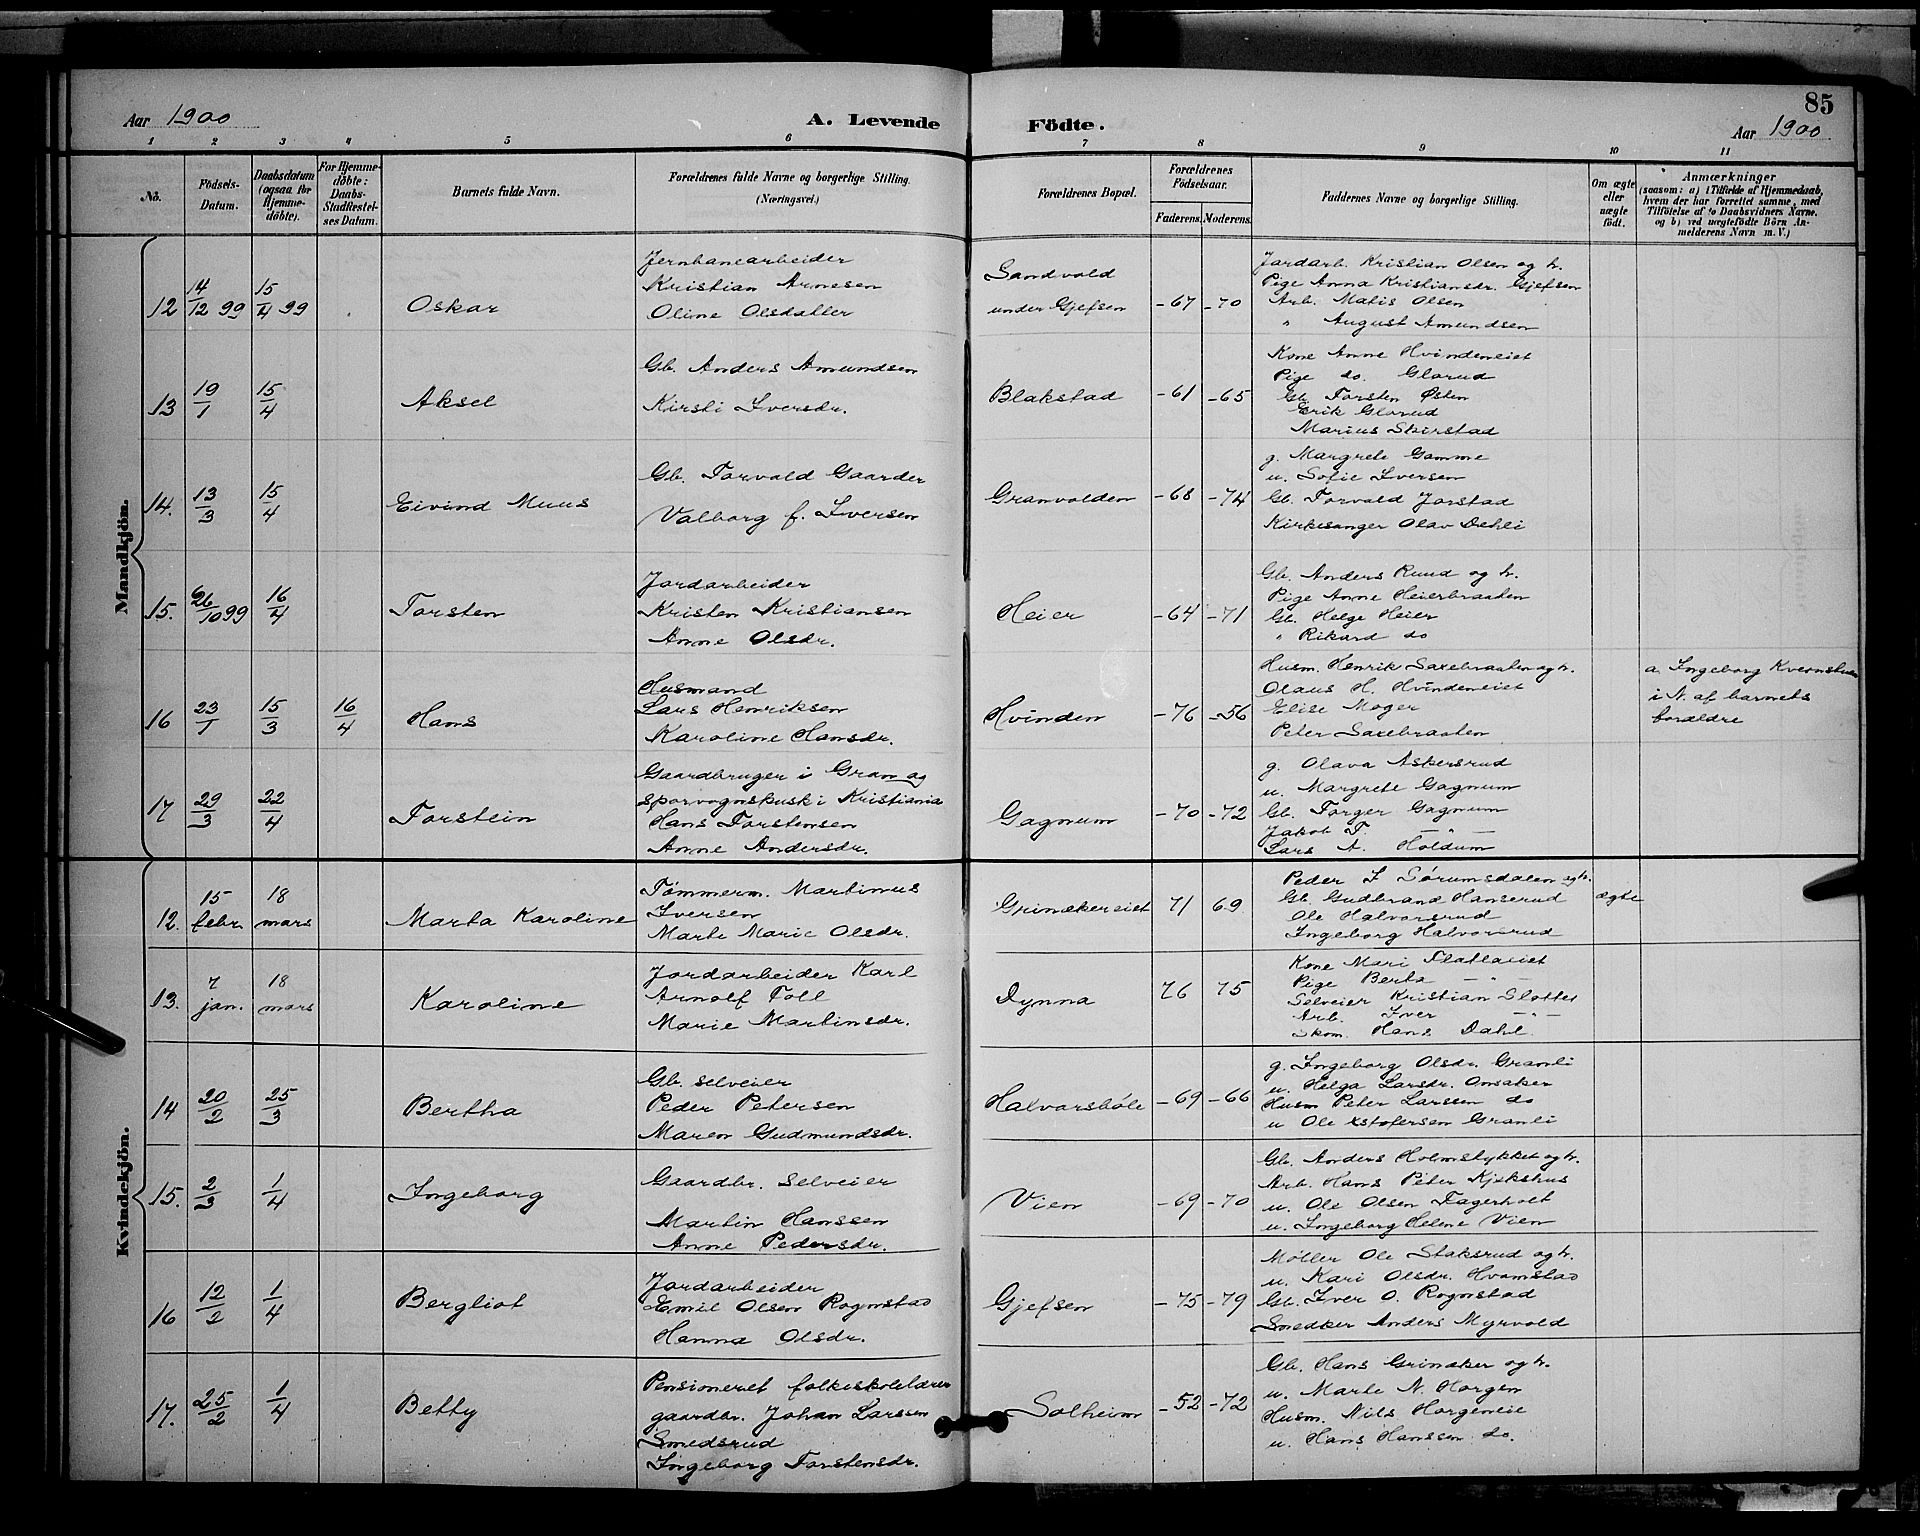 85
Aar 1900 A. Levende Födte. Aar 1900
1 2 3 4 5 6 7 8 9 10 11
No. Födsels-Datum. Daabsdatum (ogsaa for Hjemmedöbte). For Hjemmedöbte: Daabs-Stadfæstelses Datum. Barnets fulde Navn. Forældrenes fulde Navne og borgerlige Stilling. (Næringsvei.) Forældrenes Bopæl. Forældrenes Födselsaar. Faderens. Moderens. Faddernes Navne og borgerlige Stilling. Om ægte eller uægte födt. Anmærkninger (saasom: a) i Tilfælde af Hjemmedaab, hvem der har forrettet samme, med Tilföielse af to Daabsvidners Navne, og b) ved uægtefödte Börn Anmelderens Navn m. V.)
Mandkjön.
12 14/12 99 15/4 99 Oskar
Jernbanearbeider
Kristian Arnesen
Oline Olsdatter
Sandvold
under Gjefsen
-67 -70
Jordarb. Kristian Olsen og h.
Pige Anna Kristiansdr. Gjefsen
Arb. Matis Olsen
" August Amundsen
13 19/1 15/4 Aksel
Gb. Anders Amundsen
Kirsti Iversdr.
Blakstad -61 -65
Kone Anne Hvindeneiet
Pige do. Glorud
Gb. Torsten Østen
Erik Glorud
Marius Skirstad
14. 13/3 15/4 Eivind Muus
Gb. Torvald Gaarder
Valborg f. Iversen
Granvolden -68 -74
g. Margrete Gamme
u. Sofie Iversen
Gb. Torvald Jorstad
Kirkesanger Olav Dehli
15. 26/10 99 16/4 Torsten
Jordarbeider
Kristen Kristiansen
Anne Olsdr.
Heier -64 -71
Gb. Anders Ruud og h.
Pige Anne Heierbraaten
Gb. Helge Heier
" Rikard do
16 23/1 15/3 16/4 Hans
Husmand
Lars Henriksen
Karoline Hansdr.
Hvinden -76 -56
Husm. Henrik Saxebraaten og h.
Olaus H. Hvindeneiet
Elise Moger
Peter Saxebraaten
a. Ingeborg
i N. af barnets
forældre
17 29/3 22/4 Torstein
Gaardbruger i Gran og
sporvognskusk i Kristiania
Hans Torstensen
Anne Andersdr.
Gagnum -70 -72
g. Olava Askersrud
u. Margrete Gagnum
Gb. Torger Gagnum
Jakob T. — " —
Lars A. Holdum
Kvindekjön.
12. 15 febr. 18 mars Marta Karoline
Tømmerm. Martinus
Iversen
Marte Marie Olsdr.
Grinakereiet 71 69
Peder I Sørumsdalen og h.
Gb. Gudbrand Hanserud
Ole Halvorsrud
Ingeborg Halvorsrud
ægte
13. 7 jan. 18 mars Karoline
Jordarbeider Karl
Arnolf Toll
Marie Martinsdr.
Dynna 76 75
Kone Mari Flatlaeiet
Pige Berta — " —
Selveier Kristian Slotter
Arb. Iver — " —
Skom. Hans Dahl.
14 20/2 25/3 Bertha
Gb. selveier
Peder Petersen
Maren Gudmundsdr.
Halvorsbøle -69 -66
g. Ingeborg Olsdr. Granli
u. Helga Larsdr. Onsaker
Husm Peter Larssen do
u Ole Xstofersen Granli
15. 2/3 1/4 Ingeborg
Gaardbr. selveier
Martin Hanssen
Anne Pedersdr.
Vien -69 -70
Gb. Anders Holmstykket og h.
Arb. Hans Peter Kjøkshus
u. Ole Olsen Fagerholt
u. Ingeborg Helene Vien
16 12/2 1/4 Bergliot
Jordarbeider
Emil Olsen Rognstad
Hanna Olsdr.
Gjefsen -75 -79
Møller Ole Staksrud og h.
u. Kari Olsdr. Hvamstad
Gb. Iver O. Rognstad
Snedker Anders Myrvold
17. 25/2 1/4 Betty
Pensioneret folkeskolelærer
gaardbr. Johan Larssen
Smedsrud
Ingeborg Torstensdr.
Solheim -52 -72
Gb. Hans Grinaker og h.
u. Marte N. Horgen
Husm. Nils Horgeneie
u. Hans Hanssen do.